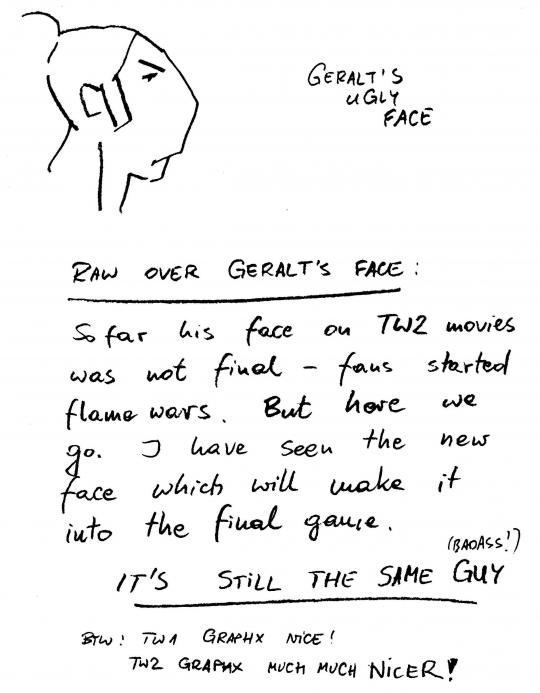 GERALT'S
UGLY
FACE
RAW OVER GERALT'S FACE:
So far his face on TW2 movies
was not final - fans started
flame wars. But here we
go. I have seen the new
face which will make it
into the final game.
(BADASS!)
IT'S STILL THE SAME GUY
BTW: TW1 GRAPHX NICE!
TW2 GRAPHX MUCH MUCH NICER!